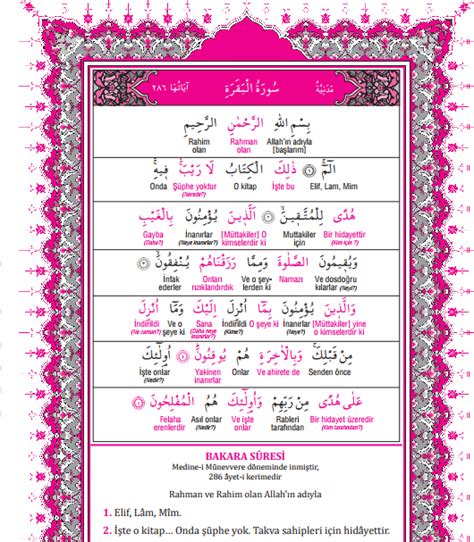 مَدَنِيَّةٌ سُورَةُ الْبَقَرَةِ اٰيَاتُهَا ٢٨٦
بِسْمِ اللّٰهِ الرَّحْمٰنِ الرَّحِيمِ
Allah'ın adıyla Rahman Rahim
[başlarım] olan olan
الٓمٓ ۝١ ذٰلِكَ الْكِتَابُ لَا رَيْبَۚ فِيهِۚ
Elif, Lam, Mim İşte bu O kitap Şüphe yoktur Onda
(Nerede?)
هُدًى لِلْمُتَّقِينَۙ ۝٢ اَلَّذِينَ يُؤْمِنُونَ بِالْغَيْبِ
Bir hidayettir Muttakiler [Müttakiler] O İnanırlar Gayba
(Kim için ?) için kimselerdir ki (Neye inanırlar?) (Daha?)
وَيُقِيمُونَ الصَّلٰوةَ وَمِمَّا رَزَقْنَاهُمْ يُنْفِقُونَۙ ۝٣
Ve dosdoğru Namazı Ve o şey- Onları İnfak
kılarlar (Neyi?) lerden ki rızıklandırdık ederler
وَالَّذِينَ يُؤْمِنُونَ بِمَٓا اُنْزِلَ اِلَيْكَ وَمَٓا اُنْزِلَ
[Müttakiler] yine İnanırlar O şeye ki İndirildi Sana Ve o İndirildi
o kimselerdir ki (Neye?) (Kime?) (Daha neye inanırlar?) şeye ki (Ne zaman?)
مِنْ قَبْلِكَۚ وَبِالْاٰخِرَةِ هُمْ يُوقِنُونَۜ ۝٤ اُولٰٓئِكَ
Senden önce Ve ahirete de Onlar Yakinen İşte onlar
inanırlar (Nedir?)
عَلٰى هُدًى مِنْ رَبِّهِمْ وَاُولٰٓئِكَ هُمُ الْمُفْلِحُونَ ۝٥
Bir hidayet üzeredir Rableri Ve işte Asıl onlar Felaha
(Kim tarafından?) tarafından onlar (Nedir?) erenlerdir
BAKARA SÛRESİ
Medine-i Münevvere döneminde inmiştir,
286 âyet-i kerimedir
Rahman ve Rahim olan Allah'ın adıyla
1. Elif, Lâm, Mîm.
2. İşte o kitap... Onda şüphe yok. Takva sahipleri için hidâyettir.